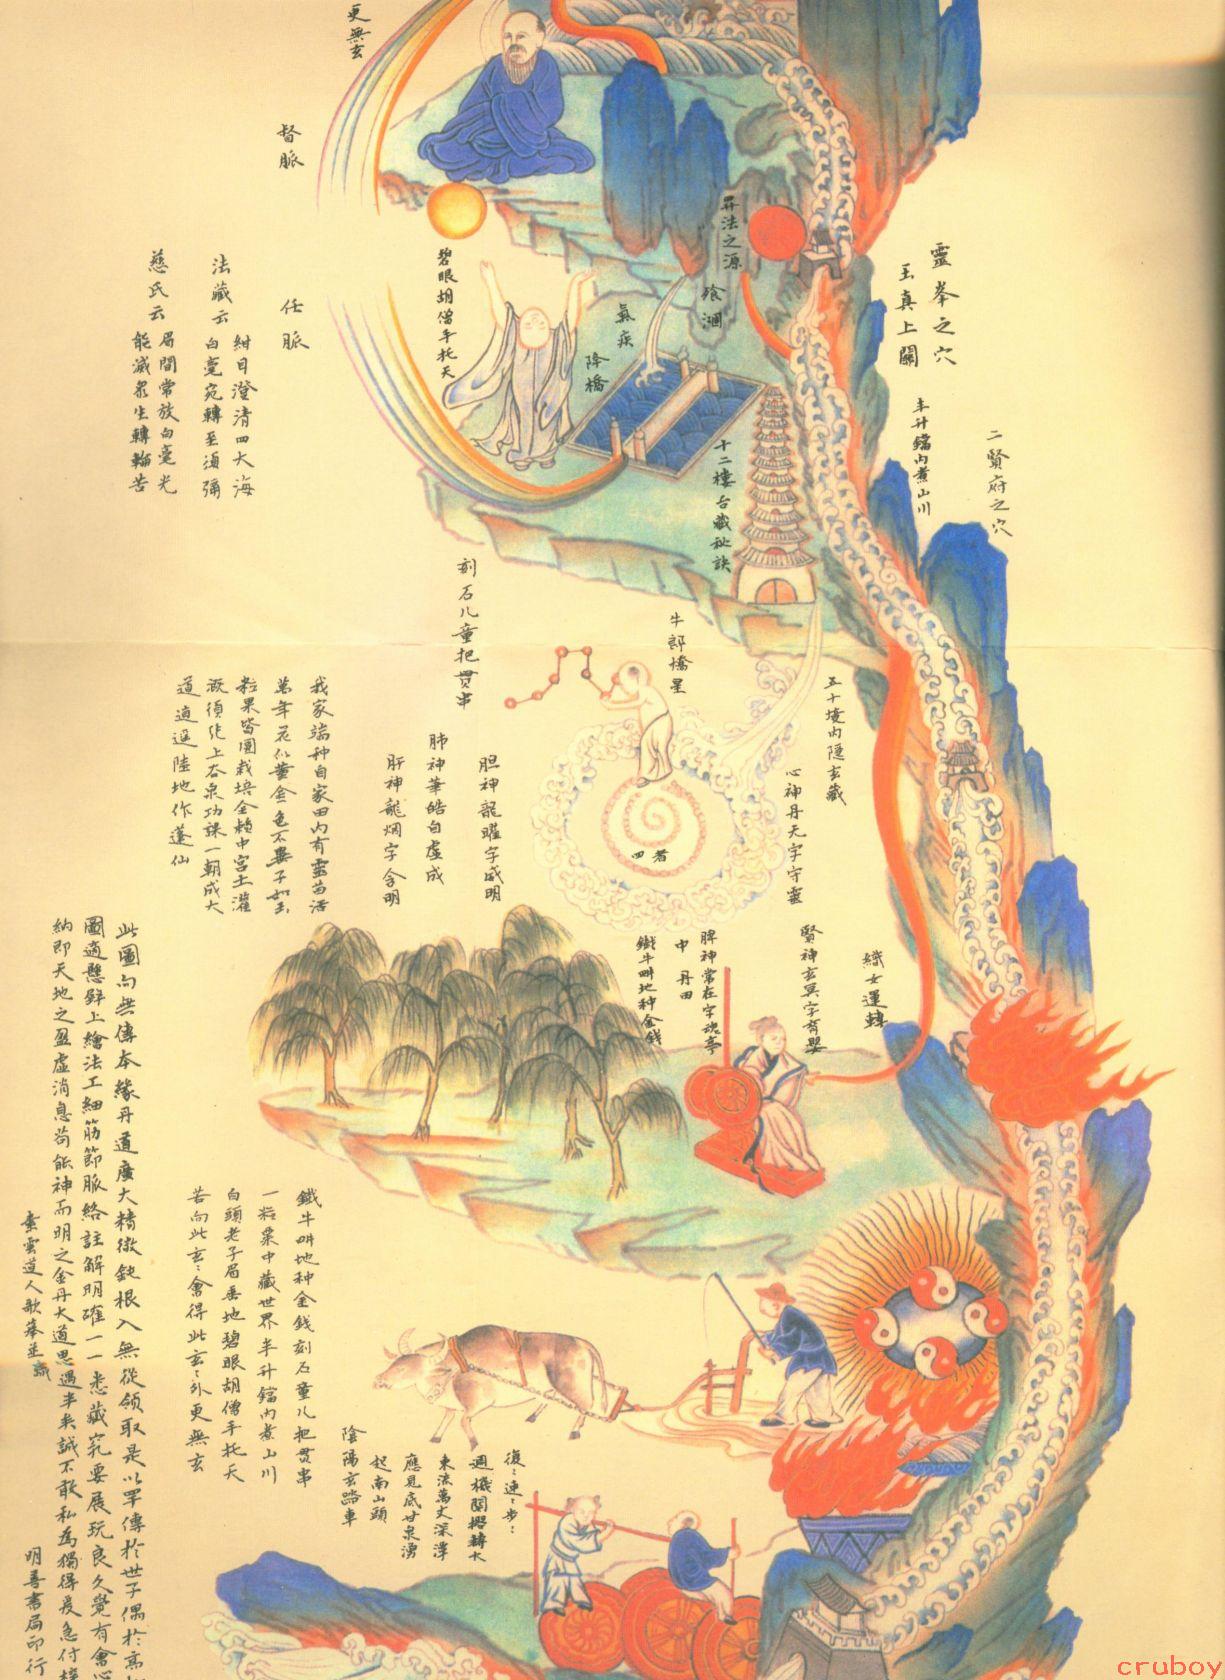 更無玄
督脈
任脈
法藏云
紺目澄清四大海
白毫宛轉至須彌
慈氏云
眉間常放白毫光
能滅衆生轉輪苦
碧眼胡僧手托天
昇法之源
降橋
十二樓台藏秘訣
靈峯之穴
玉真上關
半升鐺內煮山川
二賢府之穴
刻石儿童把貫串
牛郎橋星
五十境內隱玄藏
心神丹元字守靈
胆神龍曜字威明
肺神華皓自虛成
肝神龍烟字含明
我家端种自家田內有靈苗活
萬年花似黃金色不異子如玉
粒果皆圓栽培全賴中宮土灌
溉須凭上谷泉功課一朝成大
道逍遥陸地作蓬仙
織女運轉
賢神玄冥字育嬰
脾神常在字魂亭
中丹田
鐵牛畊地种金錢
鐵牛畊地种金錢刻石童儿把貫串
一粒粟中藏世界半升鐺內煮山川
白頭老子眉垂地碧眼胡僧手托天
若向此玄玄會得此玄玄外更無玄
陰陽玄踏車
復復連連步步
週機關撥轉水
東流萬丈深潭
應見底甘泉湧
起南山頭
此圖向無傳本緣丹道廣大精微鈍根入無從領取是以罕傳於世予偶於高
圖適懸壁上繪法工細筋節脈絡註解明確一一悉藏竅要展玩良久覺有會心
納即天地之盈虛消息苟能神而明之金丹大道思過半矣誠不敢私為獨得爰急付
素雲道人
明善書局印行
cruboy